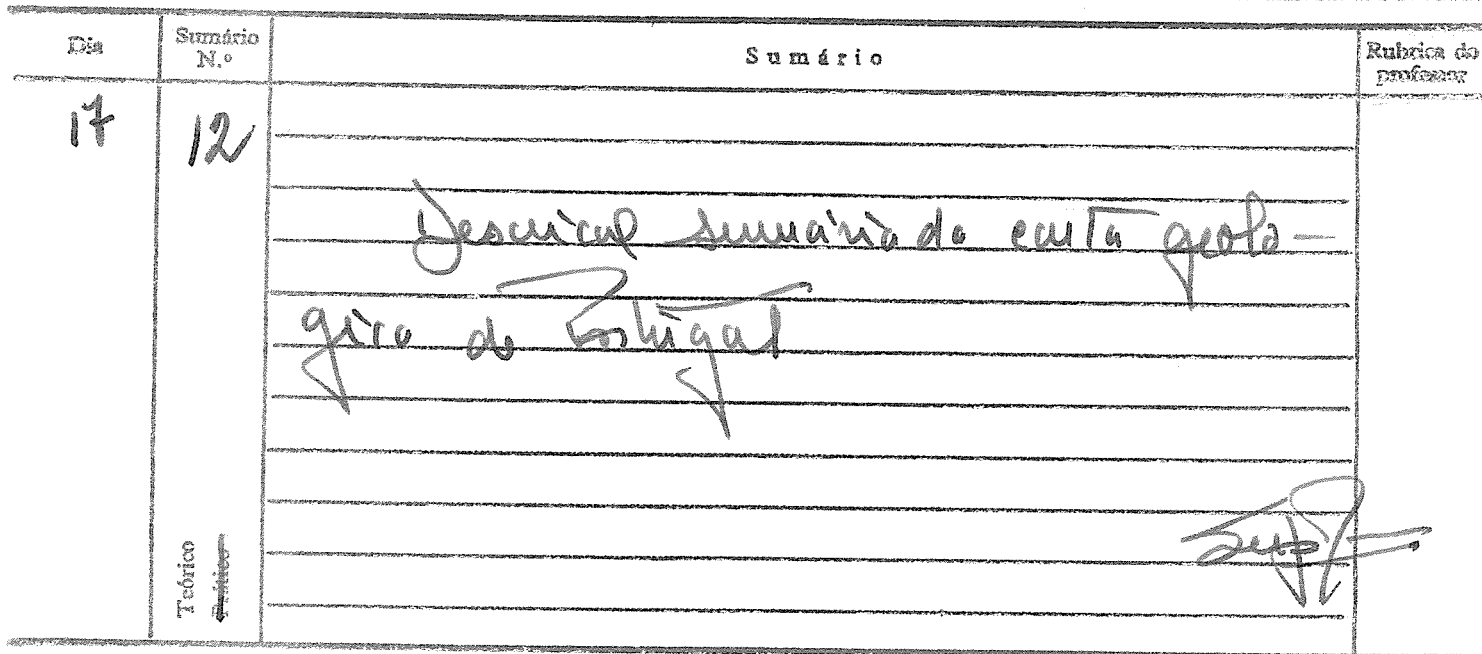 Dia
Sumário
N.º
Sumário
Rubrica do
professor
17
12
Descrição sumária da carta geoló-
gica de Portugal
Teórico
Prático